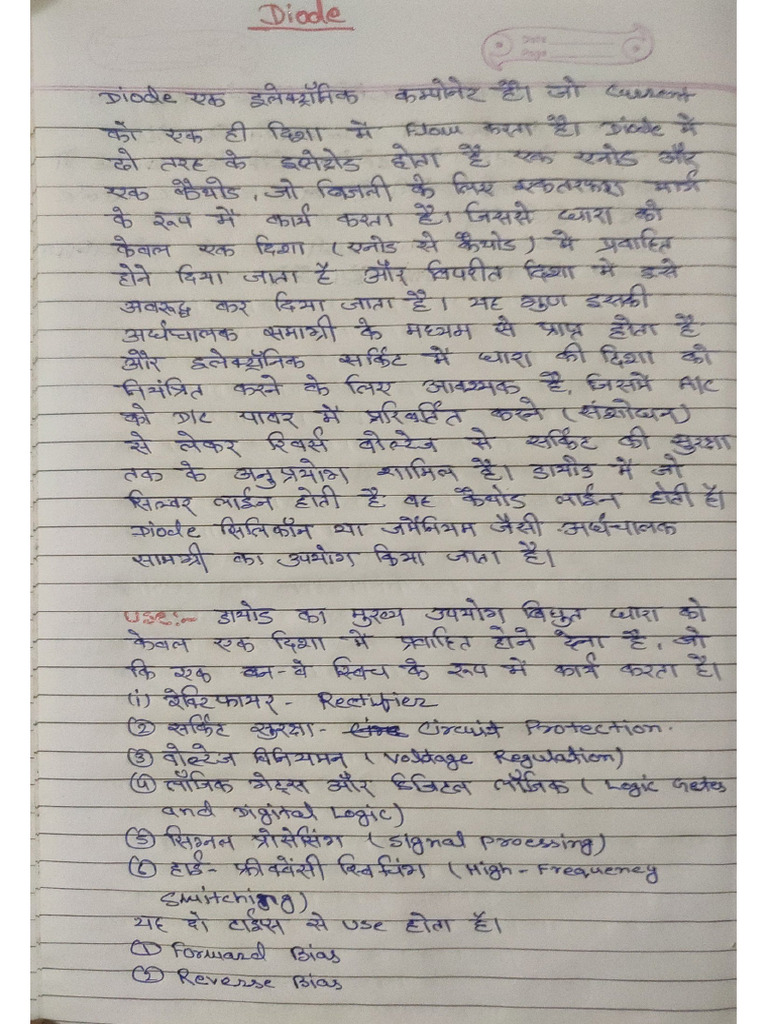 Diode
Date
Page
Diode एक इलेक्ट्रॉनिक कम्पोनेंट है। जो Current
को एक ही दिशा में Flow करता है। Diode में
दो तरह के इलेट्रोड होता है एक एनोड और
एक कैथोड, जो बिजली के लिए एकतरफा मार्ग
के रूप में कार्य करता है। जिससे धारा को
केवल एक दिशा (एनोड से कैथोड) में प्रवाहित
होने दिया जाता है और विपरीत दिशा में इसे
अवरुद्ध कर दिया जाता है। यह गुण इसकी
अर्धचालक समाग्री के मध्यम से प्राप्त होता है
और इलेक्ट्रॉनिक सर्किट में धारा की दिशा को
नियंत्रित करने के लिए आवश्यक है, जिसमें A/C
को D/C पावर में परिवर्तित करने (संशोधन)
से लेकर रिवर्स वोल्टेज से सर्किट की सुरक्षा
तक के अनुप्रयोग शामिल है। डायोड में जो
सिल्वर लाईन होती है वह कैथोड लाईन होती है।
Diode सिलिकॉन या जर्मेनियम जैसी अर्धचालक
सामग्री का उपयोग किया जाता है।
Use:- डायोड का मुख्य उपयोग विधुत धारा को
केवल एक दिशा में प्रवाहित होने देना है, जो
कि एक वन-वे स्विच के रूप में कार्य करता है।
(1) रेक्टिफायर - Rectifier
(2) सर्किट सुरक्षा - Circuit Protection.
(3) वोल्टेज विनियमन (Voltage Regulation)
(4) लॉजिक गेट्स और डिजिटल लॉजिक (Logic Gates
and Diginal Logic)
(5) सिग्नल प्रोसेसिंग (Signal Processing)
(6) हाई- फ्रीक्वेंसी स्विचिंग (High - Frequency
Switching)
यह दो टाईप्स से use होता है।
(1) Forward Bias
(2) Reverse Bias